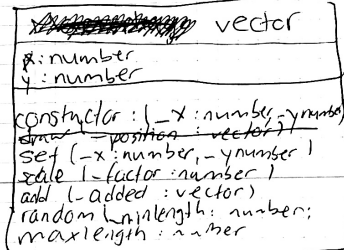 vector
x:number
y:number
constructor:(_x:number,_ynumber)
draw(_position:vector)
set(_x:number,_ynumber)
scale(_factor:number)
add(_added:vector)
random(_minlength:number;
maxlength:number